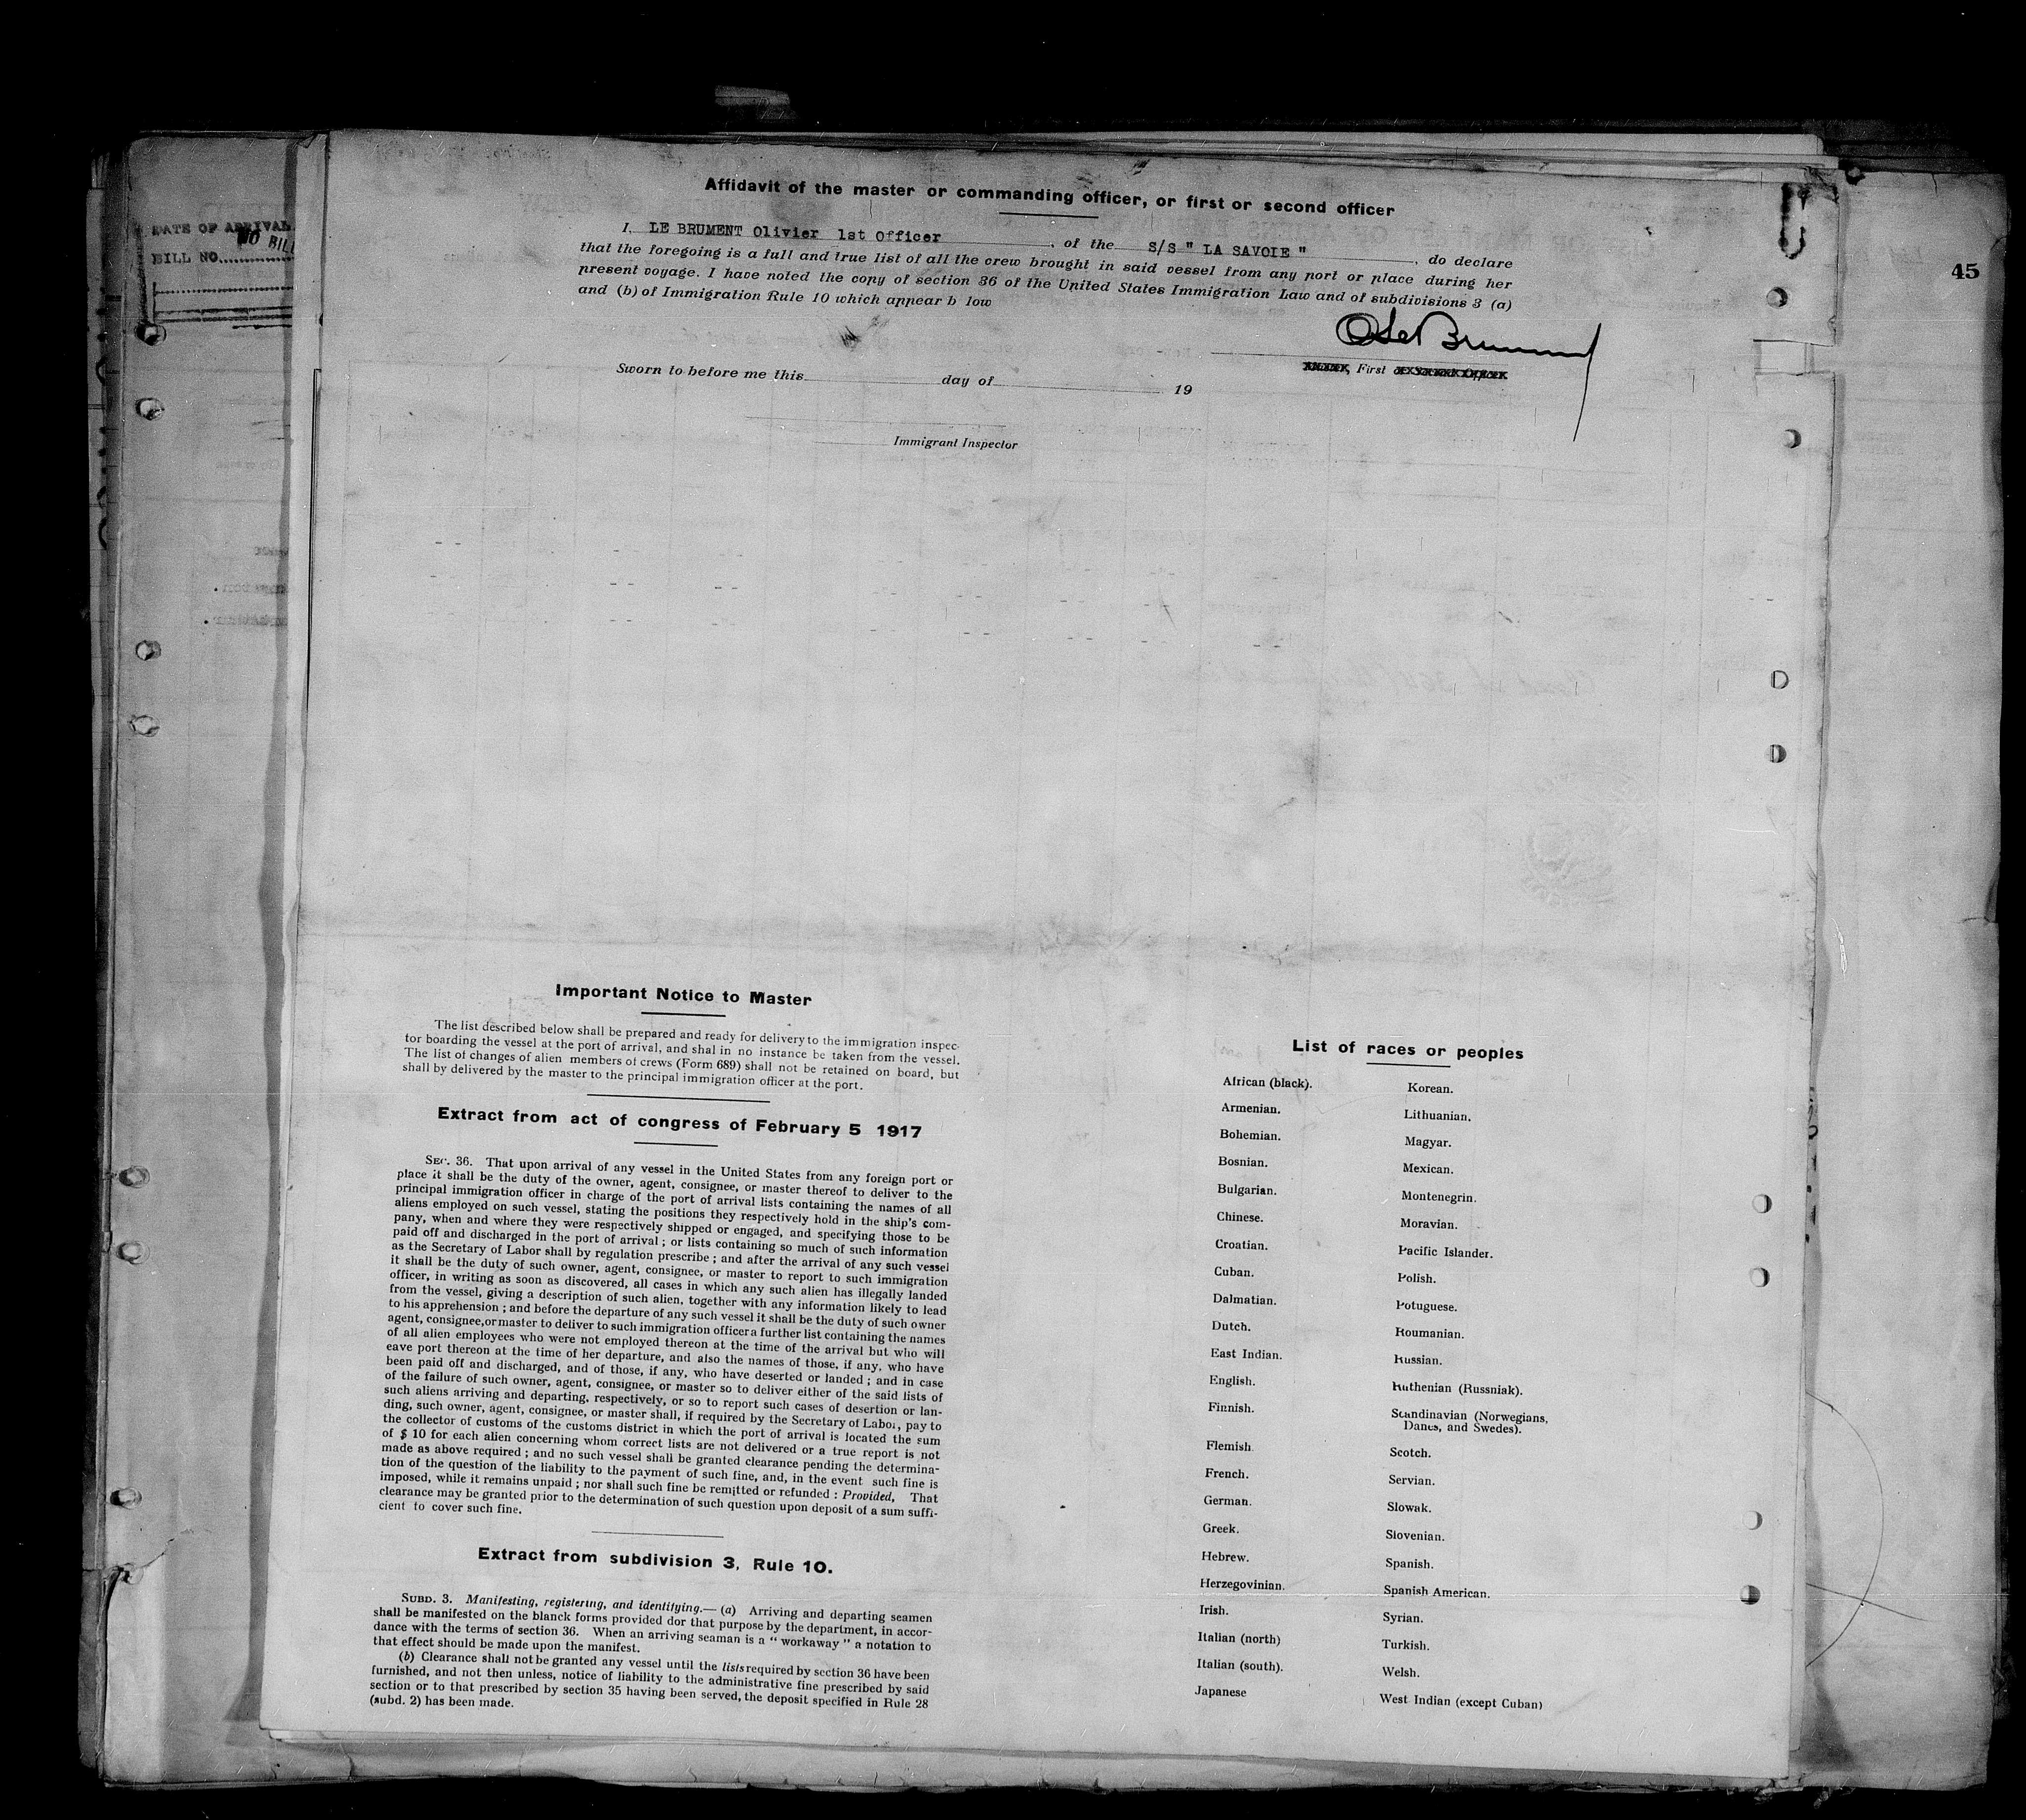 DATE OF ARRIVAL
NO BILL
BILL NO.
45
Affidavit of the master or commanding officer, or first or second officer
I, LE BRUMENT Olivier 1st Officer, of the S/S " LA SAVOIE ", do declare
that the foregoing is a full and true list of all the crew brought in said vessel from any port or place during her
present voyage. I have noted the copy of section 36 of the United States Immigration Law and of subdivisions 3 (a)
and (b) of Immigration Rule 10 which appear b low
O Le Brument
First
Sworn to before me this day of 19
Immigrant Inspector
Important Notice to Master
The list described below shall be prepared and ready for delivery to the immigration inspec-
tor boarding the vessel at the port of arrival, and shal in no instance be taken from the vessel.
The list of changes of alien members of crews (Form 689) shall not be retained on board, but
shall by delivered by the master to the principal immigration officer at the port.
Extract from act of congress of February 5 1917
SEC. 36. That upon arrival of any vessel in the United States from any foreign port or
place it shall be the duty of the owner, agent, consignee, or master thereof to deliver to the
principal immigration officer in charge of the port of arrival lists containing the names of all
aliens employed on such vessel, stating the positions they respectively hold in the ship's com-
pany, when and where they were respectively shipped or engaged, and specifying those to be
paid off and discharged in the port of arrival ; or lists containing so much of such information
as the Secretary of Labor shall by regulation prescribe ; and after the arrival of any such vessel
it shall be the duty of such owner, agent, consignee, or master to report to such immigration
officer, in writing as soon as discovered, all cases in which any such alien has illegally landed
from the vessel, giving a description of such alien, together with any information likely to lead
to his apprehension ; and before the departure of any such vessel it shall be the duty of such owner
agent, consignee,or master to deliver to such immigration officer a further list containing the names
of all alien employees who were not employed thereon at the time of the arrival but who will
eave port thereon at the time of her departure, and also the names of those, if any, who have
been paid off and discharged, and of those, if any, who have deserted or landed ; and in case
of the failure of such owner, agent, consignee, or master so to deliver either of the said lists of
such aliens arriving and departing, respectively, or so to report such cases of desertion or lan-
ding, such owner, agent, consignee, or master shall, if required by the Secretary of Labor, pay to
the collector of customs of the customs district in which the port of arrival is located the sum
of $ 10 for each alien concerning whom correct lists are not delivered or a true report is not
made as above required ; and no such vessel shall be granted clearance pending the determina-
tion of the question of the liability to the payment of such fine, and, in the event such fine is
imposed, while it remains unpaid ; nor shall such fine be remitted or refunded : Provided, That
clearance may be granted prior to the determination of such question upon deposit of a sum suffi-
cient to cover such fine.
Extract from subdivision 3, Rule 10.
SUBD. 3. Manifesting, registering, and identitying.— (a) Arriving and departing seamen
shall be manifested on the blanck forms provided dor that purpose by the department, in accor-
dance with the terms of section 36. When an arriving seaman is a " workaway " a notation to
that effect should be made upon the manifest.
(b) Clearance shall not be granted any vessel until the lists required by section 36 have been
furnished, and not then unless, notice of liability to the administrative fine prescribed by said
section or to that prescribed by section 35 having been served, the deposit specified in Rule 28
(subd. 2) has been made.
List of races or peoples
African (black).
Armenian.
Bohemian.
Bosnian.
Bulgarian.
Chinese.
Croatian.
Cuban.
Dalmatian.
Dutch.
East Indian.
English.
Finnish.
Flemish
French.
German.
Greek.
Hebrew.
Herzegovinian.
Irish.
Italian (north)
Italian (south).
Japanese
Korean.
Lithuanian.
Magyar.
Mexican.
Montenegrin.
Moravian.
Pacific Islander.
Polish.
Potuguese.
Roumanian.
Russian.
Ruthenian (Russniak).
Scandinavian (Norwegians,
Danes, and Swedes).
Scotch.
Servian.
Slowak.
Slovenian.
Spanish.
Spanish American.
Syrian.
Turkish.
Welsh.
West Indian (except Cuban)